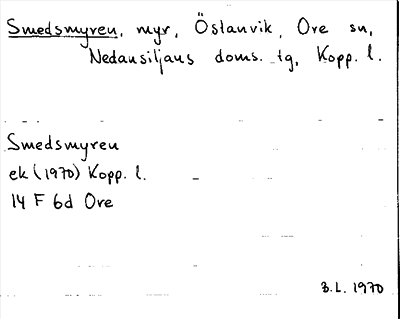 Smedsmyren, myr, Östanvik, Ore sn,
Nedansiljans doms. tg, Kopp. l.
Smedsmyren
ek (1970) Kopp. l.
14 F 6d Ore
B.L. 1970